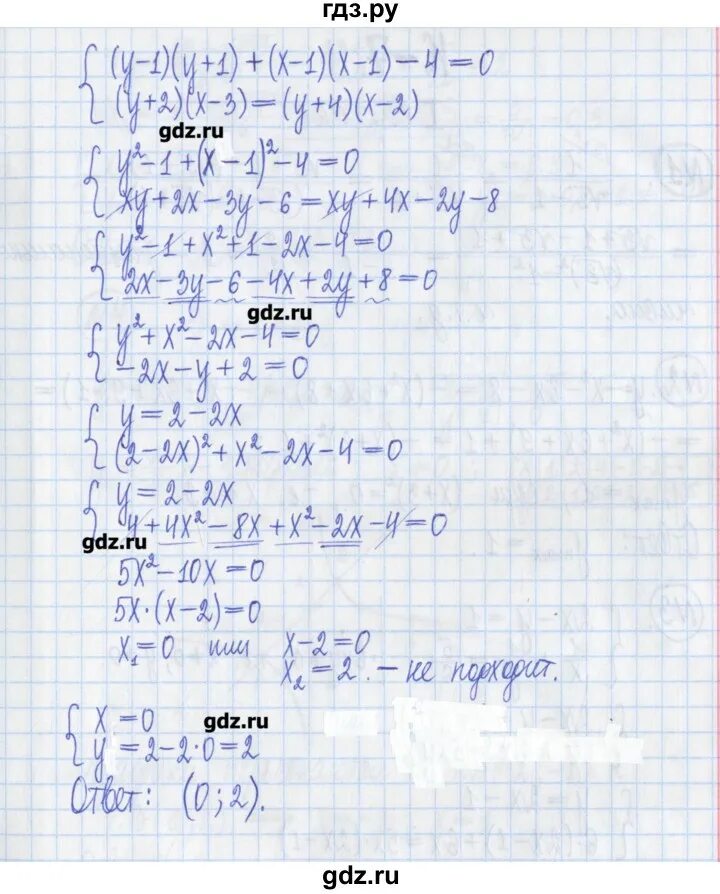 гдз.ру
(y-1)(y+1)+(x-1)(x-1)-4=0
(y+2)(x-3)=(y+4)(x-2)
gdz.ru
y²-1+(x-1)²-4=0
xy+2x-3y-6=xy+4x-2y-8
y²-1+x²+1-2x-4=0
2x-3y-6-4x+2y+8=0
gdz.ru
y²+x²-2x-4=0
-2x-y+2=0
y=2-2x
(2-2x)²+x²-2x-4=0
y=2-2x
4+4x²-8x+x²-2x-4=0
gdz.ru
5x²-10x=0
5x·(x-2)=0
x₁=0 или x-2=0
x₂=2.-не подходит.
x=0 gdz.ru
y=2-2·0=2
Ответ: (0;2).
gdz.ru